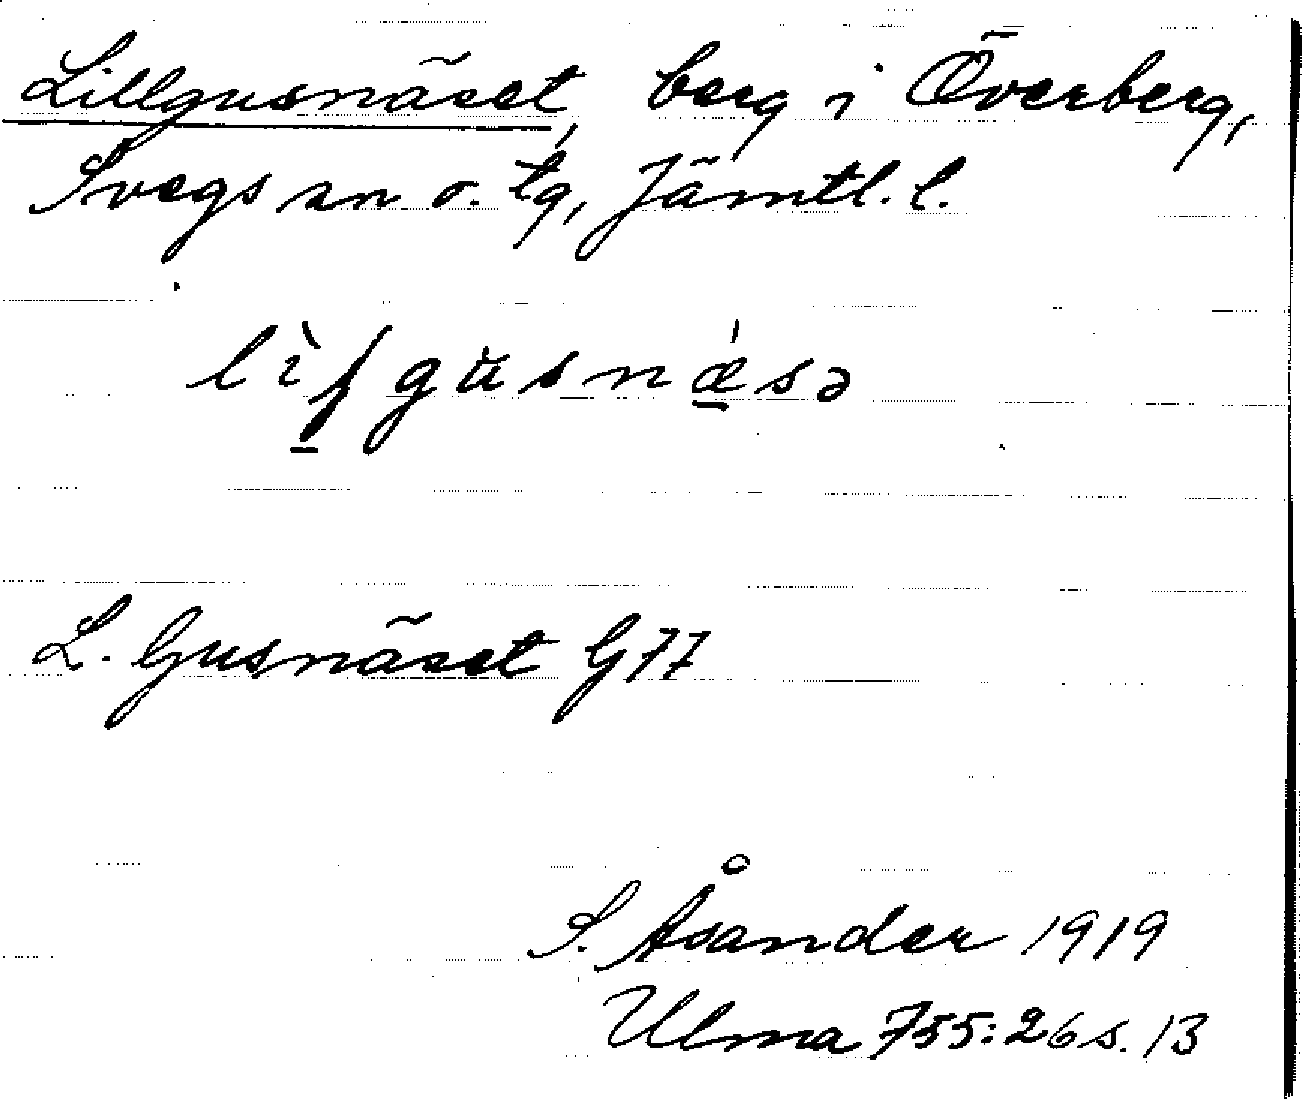 Lillgusnäset, berg i Överberg,
Svegs sn o. tg, Jämtl. l.
lìſgu̇snǽsə
L. Gusnäset G77
S. Åsander 1919
Ulma 755:26 s. 13